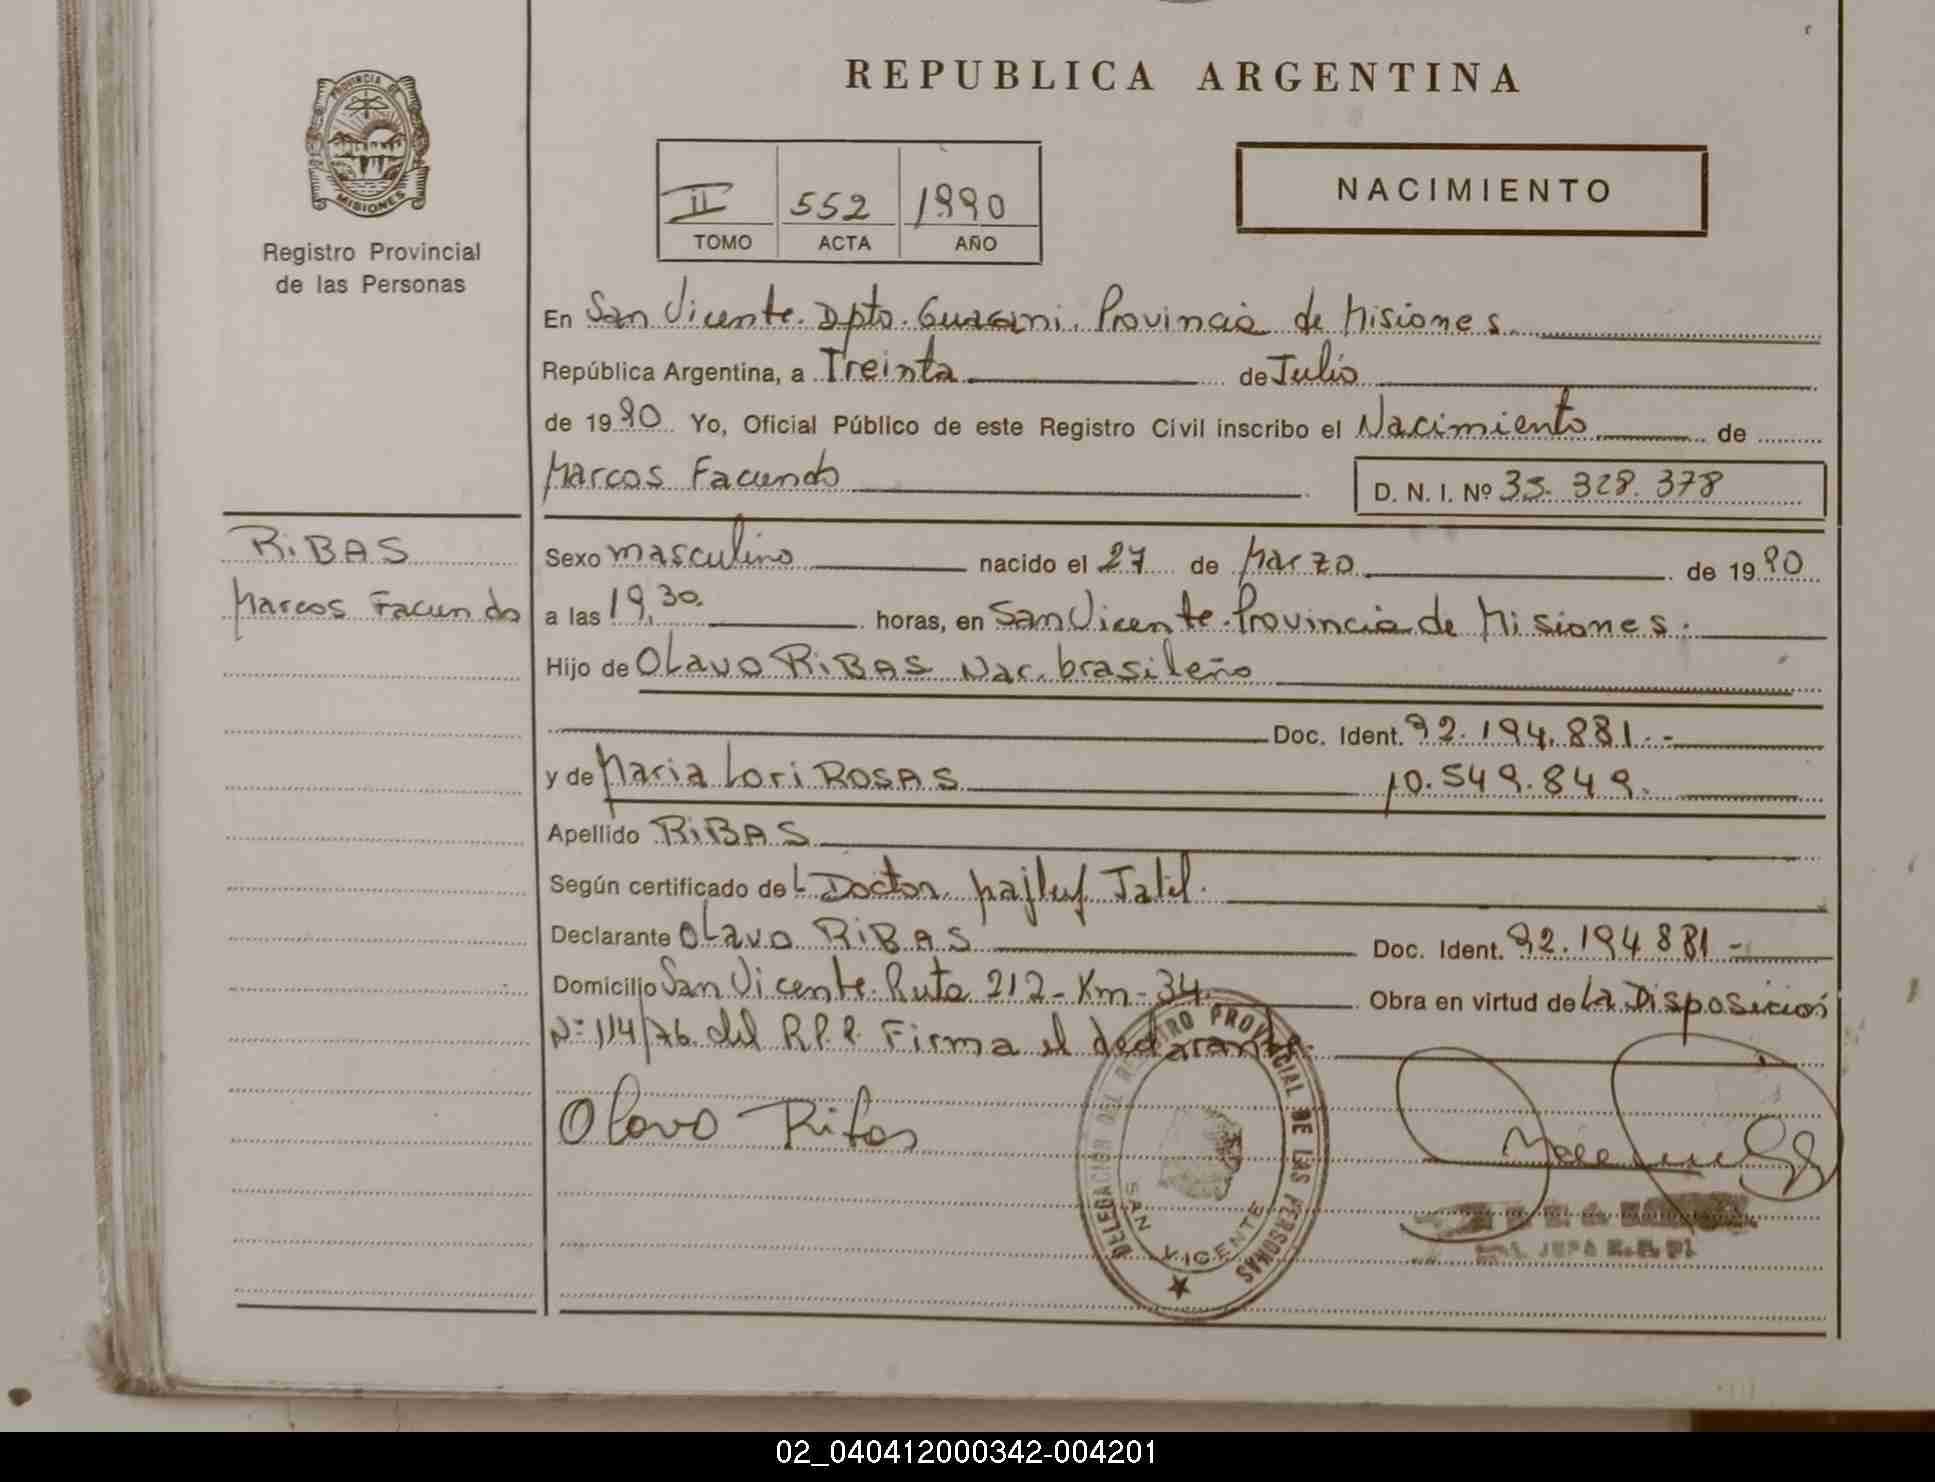 REPUBLICA ARGENTINA
PROVINCIA DE
MISIONES
Registro Provincial
de las Personas
II 552 1990
TOMO ACTA AÑO
NACIMIENTO
En San Vicente. Dpto. Guarani. Provincia de Misiones
República Argentina, a Treinta de Julio
de 1990 Yo, Oficial Público de este Registro Civil inscribo el Nacimiento de
Marcos Facundo D. N. I. Nº 35.328.378
RiBAS
Marcos Facundo
Sexo masculino nacido el 27 de Marzo de 1990
a las 19,30. horas, en San Vicente. Provincia de Misiones.
Hijo de OLavo RiBAS Nac. brasileño
Doc. Ident. 92.194.881.-
y de Maria Lori ROSAS 10.549.849.
Apellido RiBAS
Según certificado del Doctor Jalil.
Declarante OLavo RiBAS Doc. Ident. 92.194 881-
Domicilio San Vicente. Ruta 212- Km- 34. Obra en virtud de La Disposición
Nº 114/76 del R.P.P. Firma el declarante.
Olavo Ribas
DELEGACION DEL REGISTRO PROVINCIAL DE LAS PERSONAS
SAN VICENTE
02_040412000342-004201